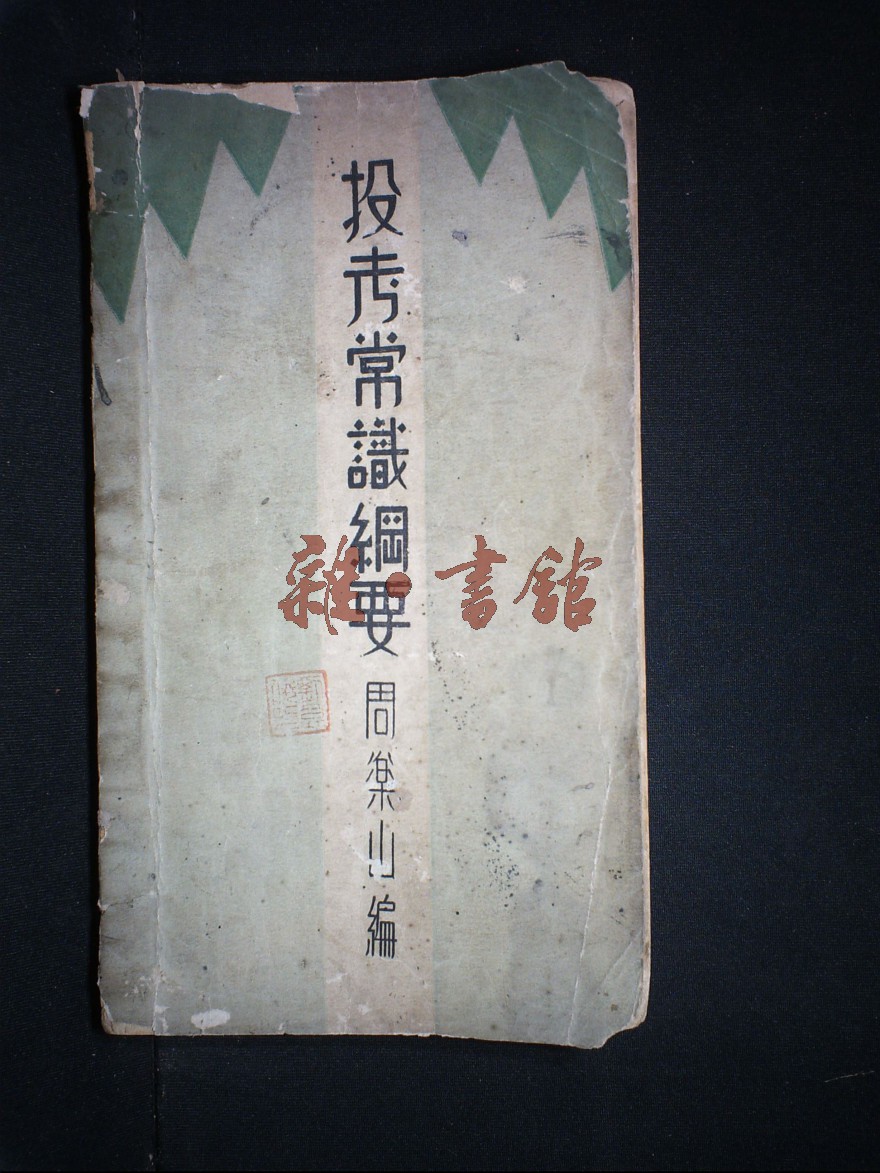 投考常識綱要
周樂山編
雜·書館